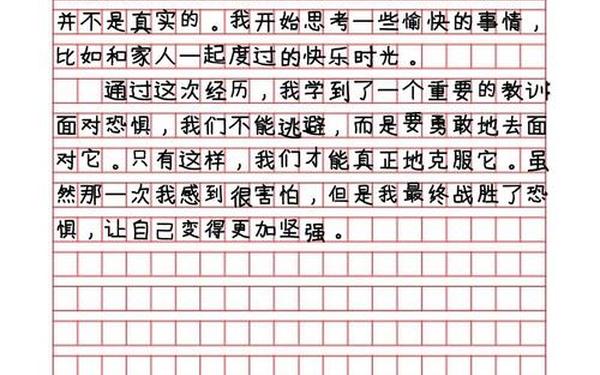 并不是真实的。我开始思考一些愉快的事情，
比如和家人一起度过的快乐时光。
通过这次经历，我学到了一个重要的教训
面对恐惧，我们不能逃避，而是要勇敢地去面
对它。只有这样，我们才能真正地克服它。虽
然那一次我感到很害怕，但是我最终战胜了恐
惧，让自己变得更加坚强。